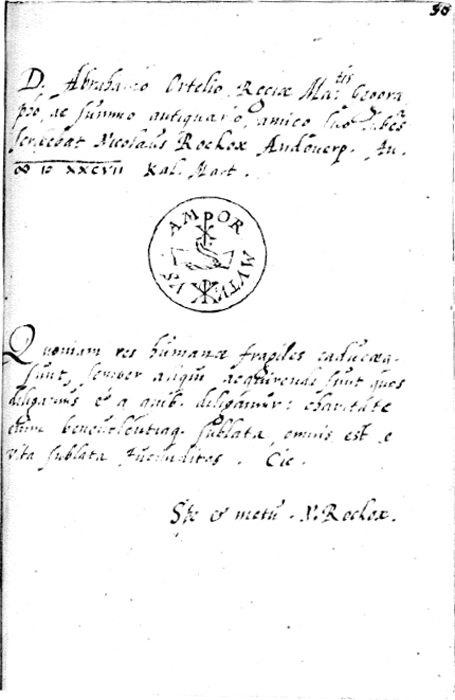 50
D. Abrahamo Ortelio, Regiæ Ma:tis Geogra
pho, ac summo antiquario, amico suo
scribebat Nicolaus Rockox Andoverp. An.
XXCVII Kal. Mart.
AMOR MVTVVS
Quoniam res humanæ fragiles caducæq.
sunt, semper aliqui acquirendi sunt quos
diligamus et a quib. diligamur: charitate
enim benevolentiaq. sublata, omnis est e
vita sublata iucunditas. Cic.
Spe et metu. N. Rockox.